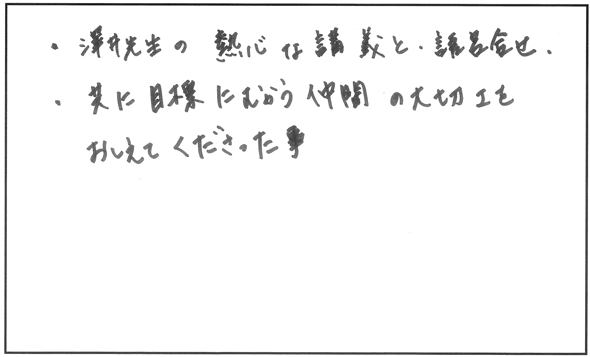 ・澤井先生の熱心な講義と、語呂合せ、
・共に目標にむかう仲間の大切さを
おしえてくださった事